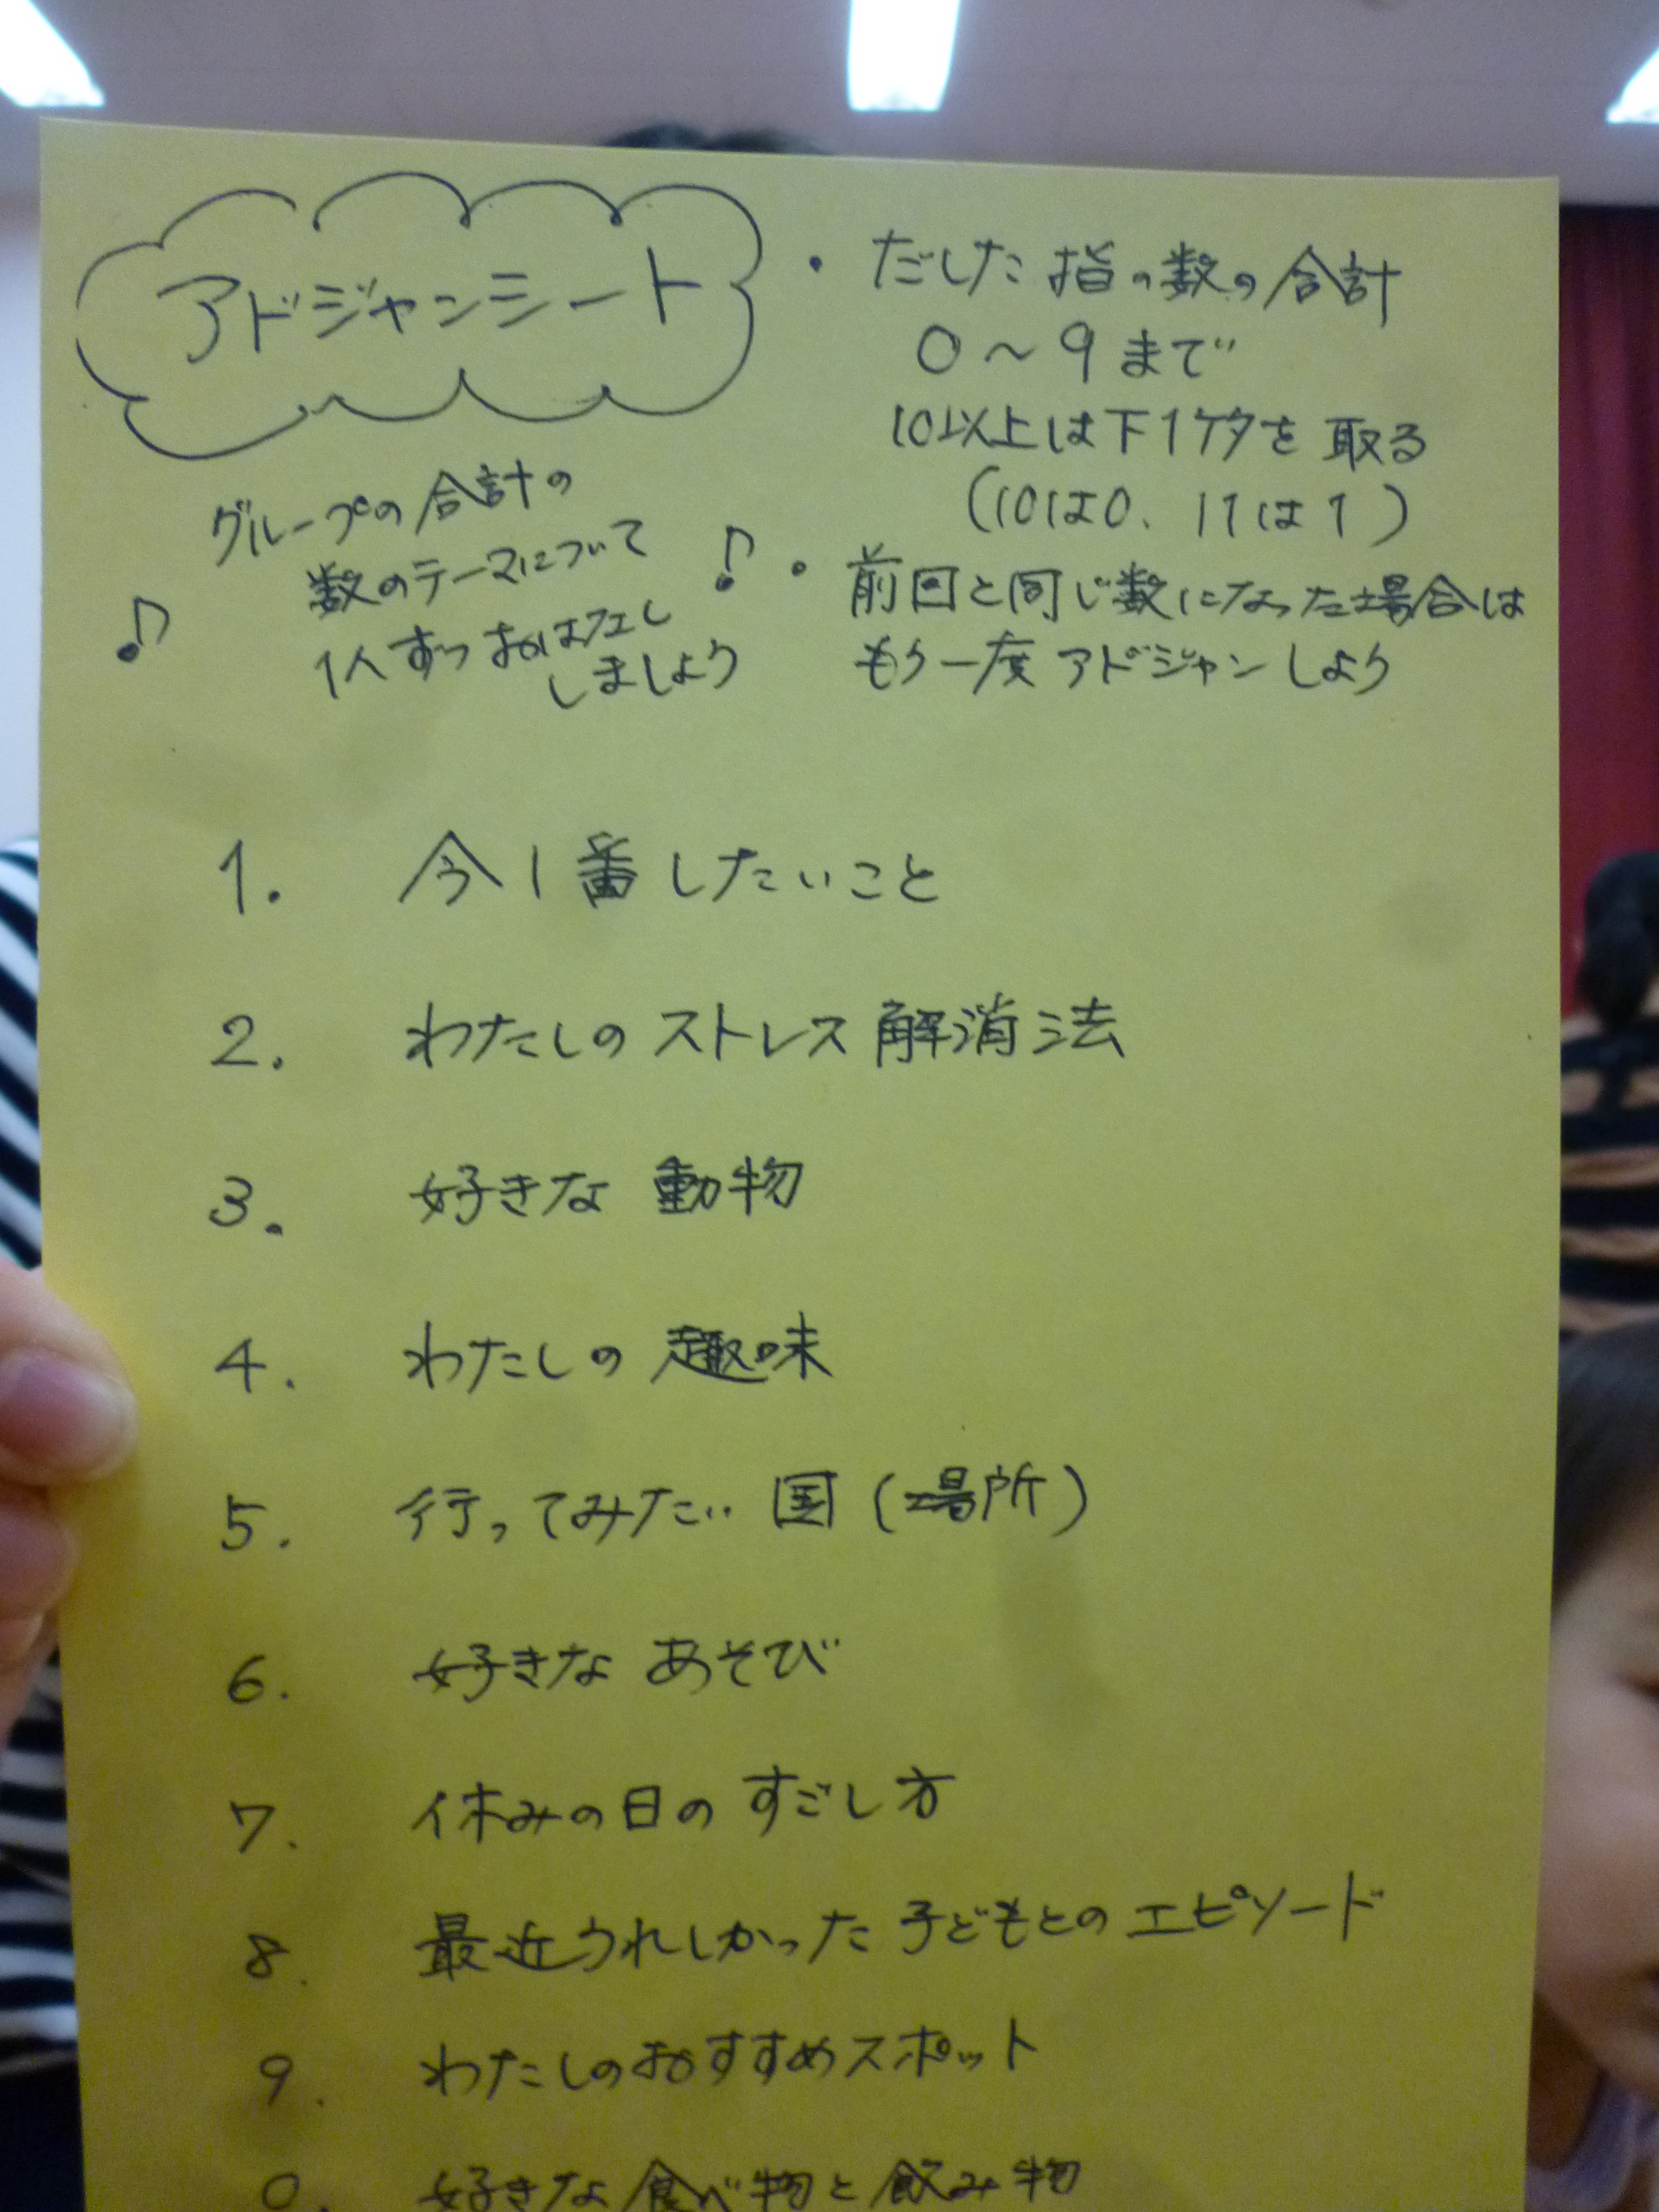 アドジャンシート
グループの合計の
数のテーマについて
1人ずつおはなし
しましょう
・だした指の数の合計
0〜9まで
10以上は下1ケタを取る
(10は0、11は1)
・前回と同じ数になった場合は
もう一度アドジャンしよう
1. 今1番したいこと
2. わたしのストレス解消法
3. 好きな動物
4. わたしの趣味
5. 行ってみたい国(場所)
6. 好きなあそび
7. 休みの日のすごし方
8. 最近うれしかった子どもとのエピソード
9. わたしのおすすめスポット
0. 好きな食べ物と飲み物